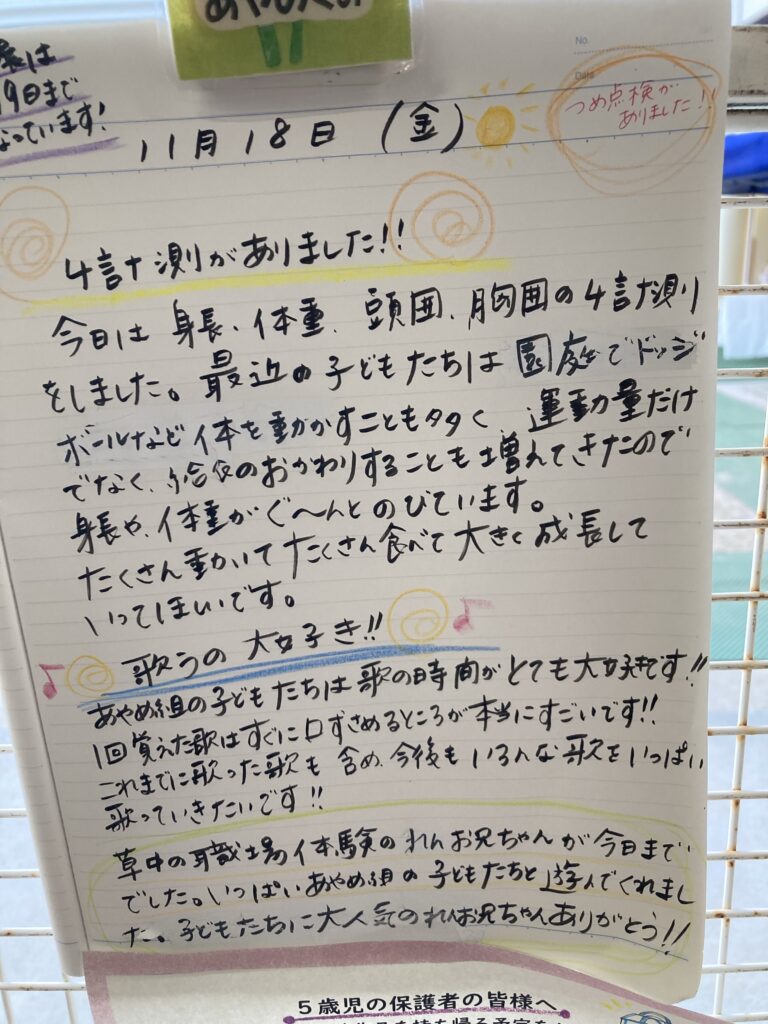 あやめぐみ
展は
19日まで
なっています!
No.
Date
つめ点検が
ありました!!
11月18日(金)
4計測がありました!!
今日は身長、体重、頭囲、胸囲の4計測
をしました。最近の子どもたちは園庭でドッジ
ボールなど体を動かすことも多く、運動量だけ
でなく、給食のおかわりすることも増えてきたので
身長や、体重がぐ〜んとのびています。
たくさん動いてたくさん食べて大きく成長して
いってほしいです。
歌うの大好き!!
あやめ組の子どもたちは歌の時間がとても大好きです!!
1回覚えた歌はすぐに口ずさめるところが本当にすごいです!!
これまでに歌った歌も含め、今後もいろんな歌をいっぱい
歌っていきたいです!!
草中の職場体験のれんお兄ちゃんが今日まで
でした。いっぱいあやめ組の子どもたちと遊んでくれまし
た。子どもたちに大人気のれんお兄ちゃんありがとう!!
5歳児の保護者の皆様へ